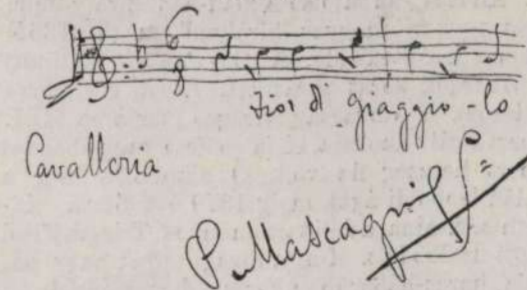 6
8
Fior di giaggio-lo
Cavalleria
P. Mascagni